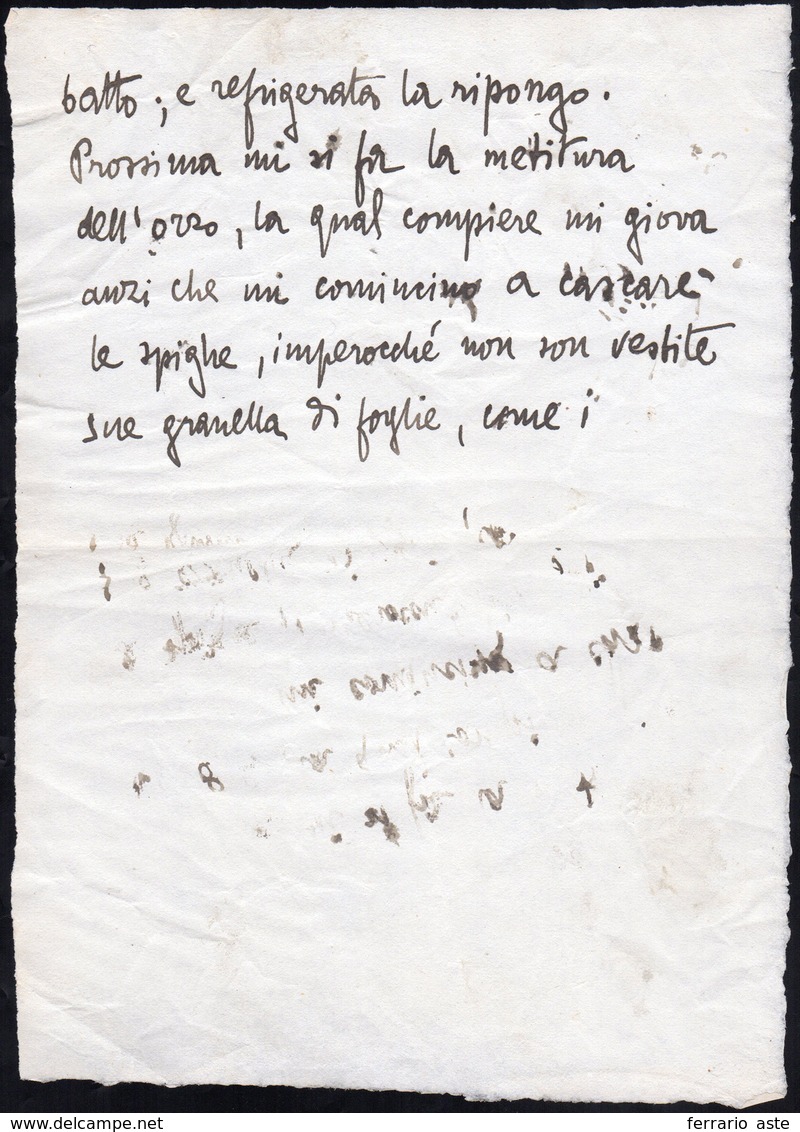 batto; e refrigerata la ripongo.
Prossima mi si fa la metitura
dell'orzo, la qual compiere mi giova
anzi che mi comincino a cascare
le spighe, imperocché non son vestite
sue granella di foglie, come i
www.delcampe.net
ferrario aste